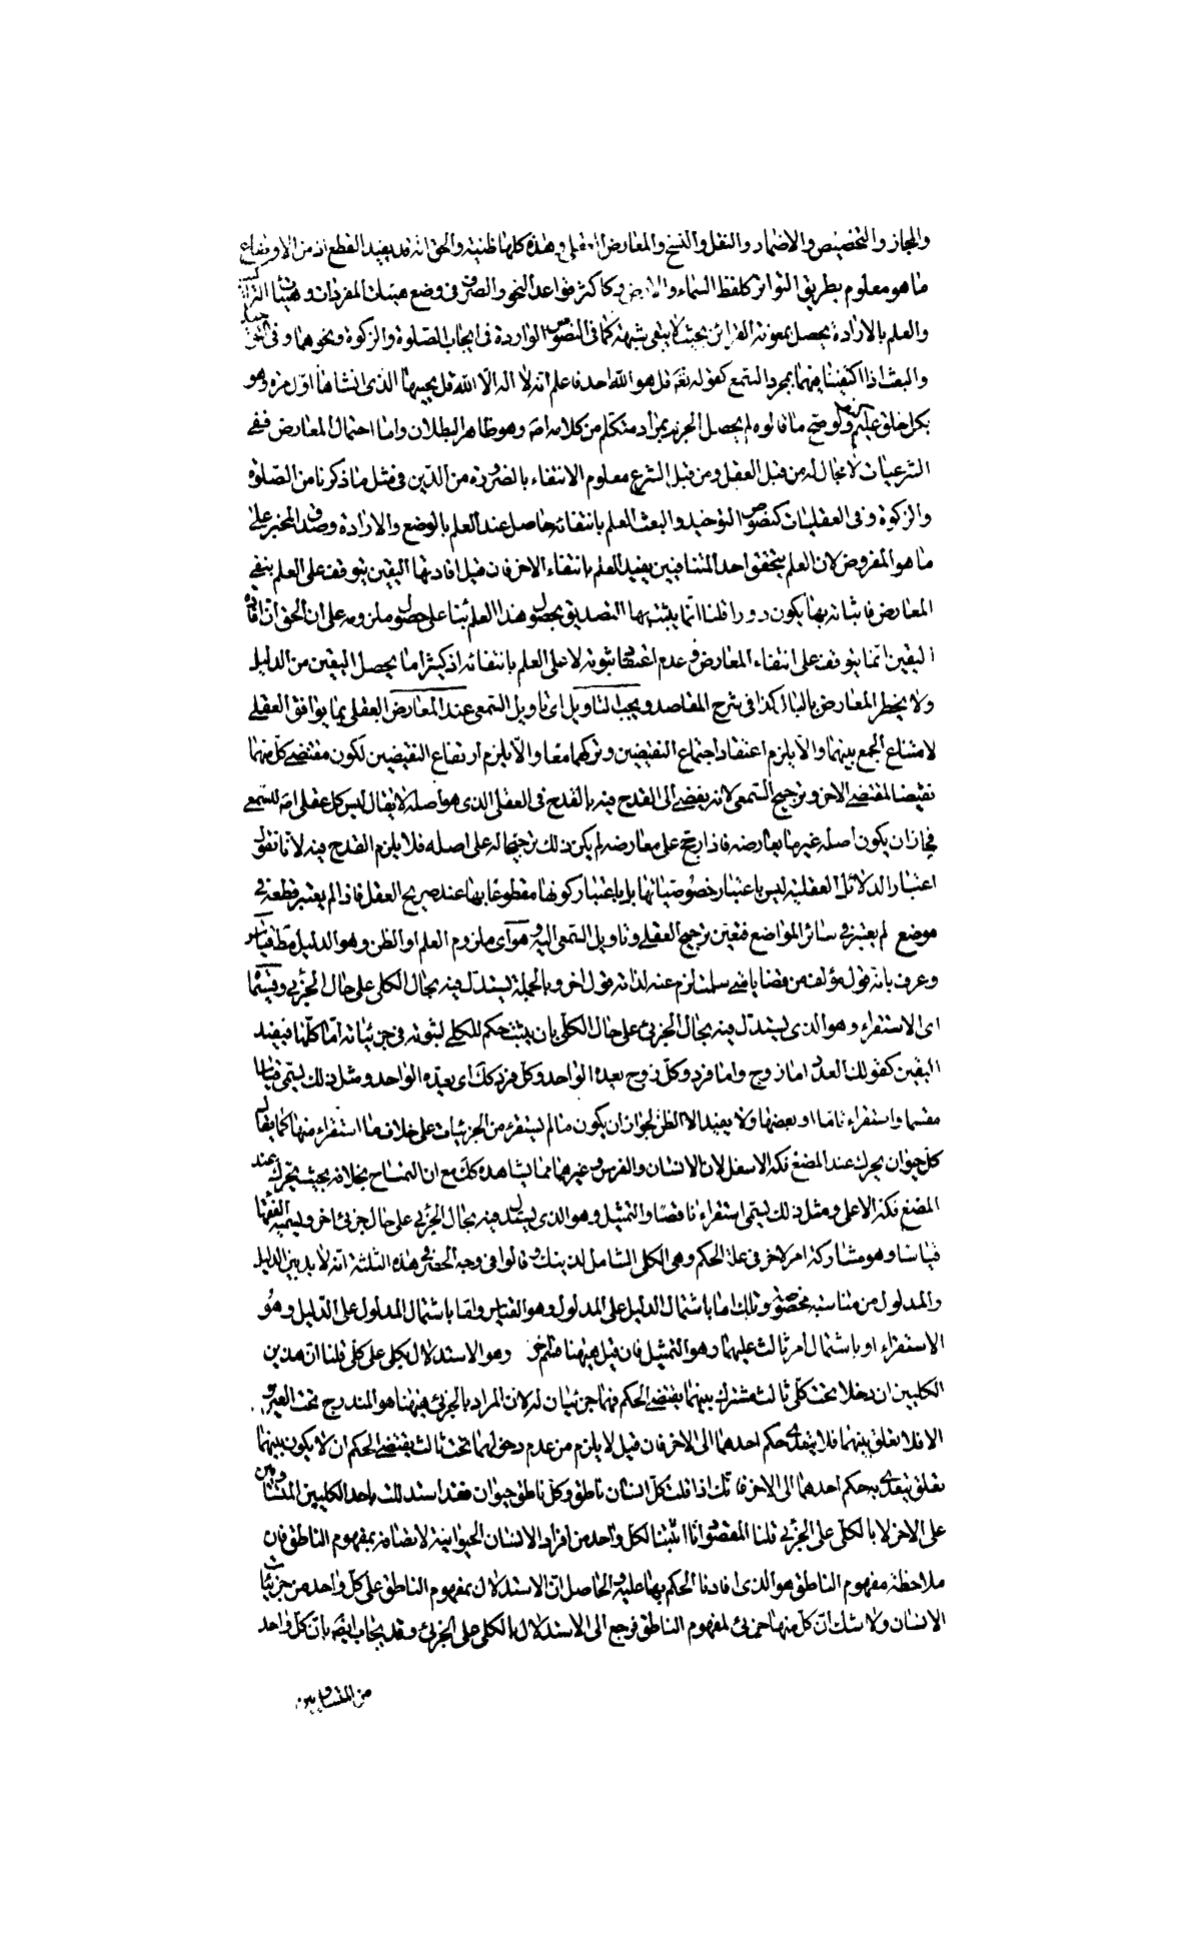 والمجاز والتخصيص والاضمار والنقل والنسخ والمعارض العقلى وهذه كلها ظنية والحق انه قد يفيد القطع اذ من الاوضاع
ما هو معلوم بطريق التواتر كلفظ السماء والارض وكاكثر قواعد النحو والصرف فى وضع هيئات المفردات وهيئات التراكيب
والعلم بالارادة يحصل بمعونة القرائن بحيث لا يبقى شبهة كما فى النصوص الواردة فى ايجاب الصلوة والزكوة ونحوهما وفى التوحيد
والبعث اذا اكتفينا فيهما بمجرد السمع كقوله تع قل هو الله احد فاعلم انه لا اله الا الله قل يحييها الذى انشاها اول مرة وهو
بكل خلق عليم ولو صح ما قالوه لم يحصل الجزم بمراد متكلم من كلامه اصلا وهو ظاهر البطلان واما احتمال المعارض ففى
الشرعيات لا مجال له من قبل العقل ومن قبل الشرع معلوم الانتفاء بالضرورة من الدين فى مثل ما ذكرنا من الصلوة
والزكوة وفى العقليات كنصوص التوحيد والبعث العلم بانتفائه حاصل عند العلم بالوضع والارادة وصدق المخبر على
ما هو المفروض لان العلم بتحقق احد المتنافيين يفيد العلم بانتفاء الاخر فان قيل افادتها اليقين يتوقف على العلم بنفى
المعارض فاثباته بها يكون دورا قلنا انما يثبت بها التصديق بحصول هذا العلم بناء على حصول ملزومه على ان الحق ان افادة
اليقين انما يتوقف على انتفاء المعارض وعدم اعتقاد ثبوته لا على العلم بانتفائه اذ كثيرا ما يحصل اليقين من الدليل
ولا يخطر المعارض بالبال كذا فى شرح المقاصد ويجب التاويل اى تاويل السمعى عند المعارض العقلى بما يوافق العقلى
لامتناع الجمع بينهما والا يلزم اعتقاد اجتماع النقيضين وتركهما معا والا يلزم ارتفاع النقيضين لكون مقتضى كل منهما
نقيضا لمقتضى الاخر وترجيح السمعى لانه يفضى الى القدح فيه بالقدح فى العقلى الذى هو اصله لا يقال ليس كل عقلى اصلا للسمعى
فجاز ان يكون اصله غير ما يعارضه فاذا رجح على معارضه لم يكن ذلك ترجيحا له على اصله فلا يلزم القدح فيه لانا نقول
اعتبار الدلائل العقلية ليس باعتبار خصوصياتها بل باعتبار كونها مقطوعا بها عند صريح العقل فاذا لم يعتبر قطعه فى
موضع لم يعتبر فى سائر المواضع فتعين ترجيح العقلى وتاويل السمعى اليه وهو اى ملزوم العلم او الظن وهو الدليل مط قياس
وعرف بانه قول مؤلف من قضايا متى سلمت لزم عنه لذاته قول اخر وبالجملة يستدل فيه بحال الكلى على حال الجزئى وقسيماه
اى الاستقراء وهو الذى يستدل فيه بحال الجزئى على حال الكلى بان يثبت حكم للكلى لثبوته فى جزئياته اما كلها فيفيد
اليقين كقولك العدد اما زوج واما فرد وكل زوج يعده الواحد وكل فرد كك اى يعده الواحد ومثل ذلك يسمى قياسا
مقسما واستقراء تاما او بعضها ولا يفيد الا الظن لجواز ان يكون ما لم يستقرء من الجزئيات على خلاف ما استقرء منها كما يقال
كل حيوان يحرك عند المضغ فكه الاسفل لان الانسان والفرس وغيرهما مما يشاهده كك مع ان التمساح بخلافه بحيث يتحرك عند
المضغ فكه الاعلى ومثل ذلك يسمى استقراء ناقصا والتمثيل وهو الذى يستدل فيه بحال الجزئى على حال جزئى اخر ويسميه الفقهاء
قياسا وهو مشاركة امر لاخر فى علة الحكم وهى الكلى الشامل لذينك وقالوا فى وجه الحصر فى هذه الثلثة انه لا بد بين الدليل
والمدلول من مناسبة مخصوصة وتلك اما باشتمال الدليل على المدلول وهو القياس واما باشتمال المدلول على الدليل وهو
الاستقراء او باشتمال امر ثالث عليهما وهو التمثيل فان قيل هيهنا قسم اخر وهو الاستدلال بكلى على كلى قلنا ان هذين
الكليين ان دخلا تحت كلى ثالث مشترك بينهما يقتضى الحكم فهما جزئيان له لان المراد بالجزئى هيهنا هو المندرج تحت الغير و
الا فلا تعلق بينهما فلا يتعدى حكم احدهما الى الاخر فان قيل لا يلزم من عدم دخولهما تحت ثالث يقتضى الحكم ان لا يكون بينهما
تعلق يتعدى به حكم احدهما الى الاخر فانك اذا قلت كل انسان ناطق وكل ناطق حيوان فقد استدللت باحد الكليين المتساويين
على الاخر لا بالكلى على الجزئى قلنا المقصود انا اثبتنا لكل واحد من افراد الانسان الحيوانية لاتصافه بمفهوم الناطق فان
ملاحظة مفهوم الناطق هو الذى افادنا الحكم بها عليه والحاصل ان الاستدلال بمفهوم الناطق على كل واحد من جزئيات
الانسان ولا شك ان كل منها جزئى لمفهوم الناطق فرجع الى الاستدلال بالكلى على الجزئى وقد يجاب ايضه بان كل واحد
من المتساويين